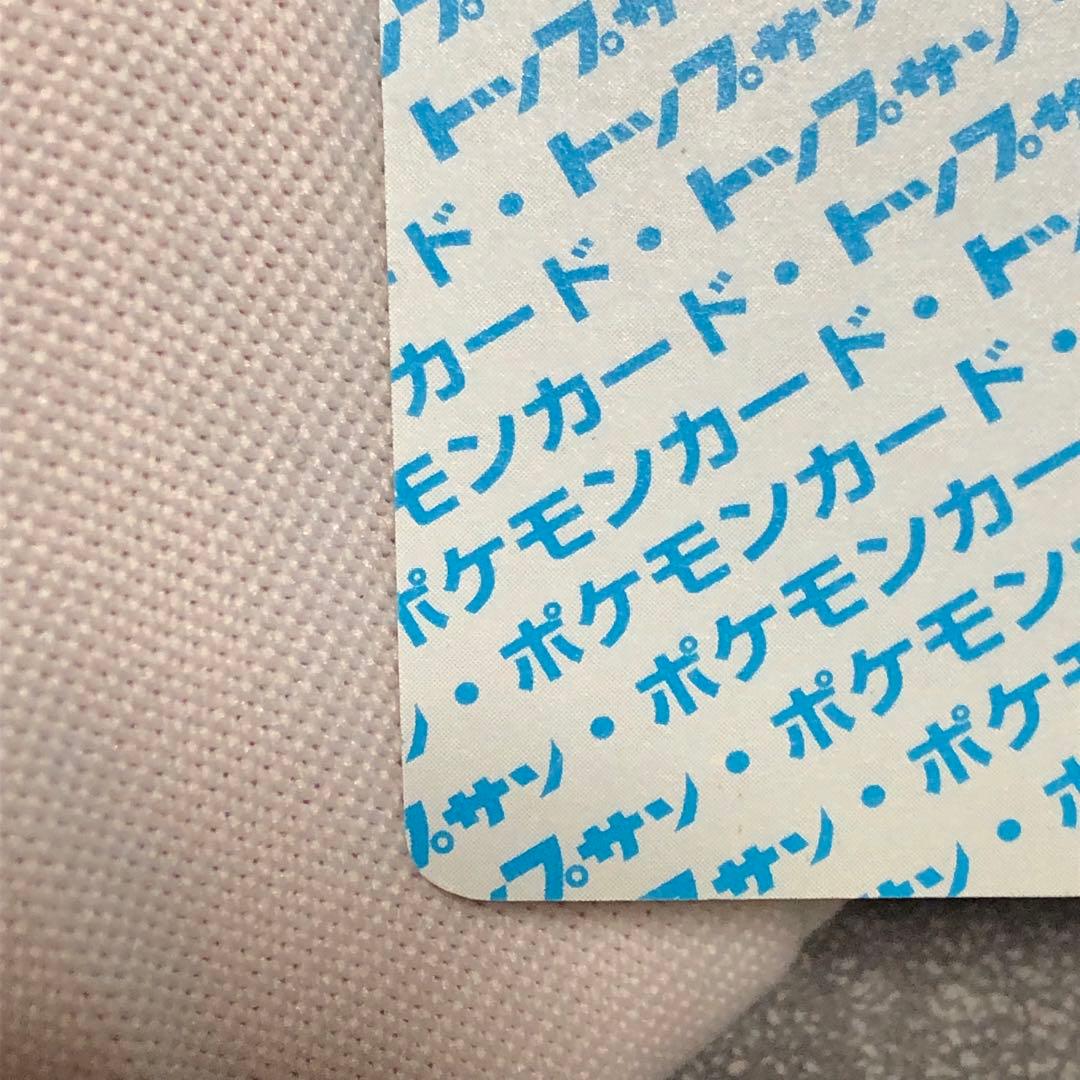 トップサ
ド・トップサン
カード・トップサン
モンカード・トップサ
ポケモンカード・トッ
ン・ポケモンカード・
プサン・ポケモンカー
プサン・ポケモン
プサン・ポケモ
サン・ポ